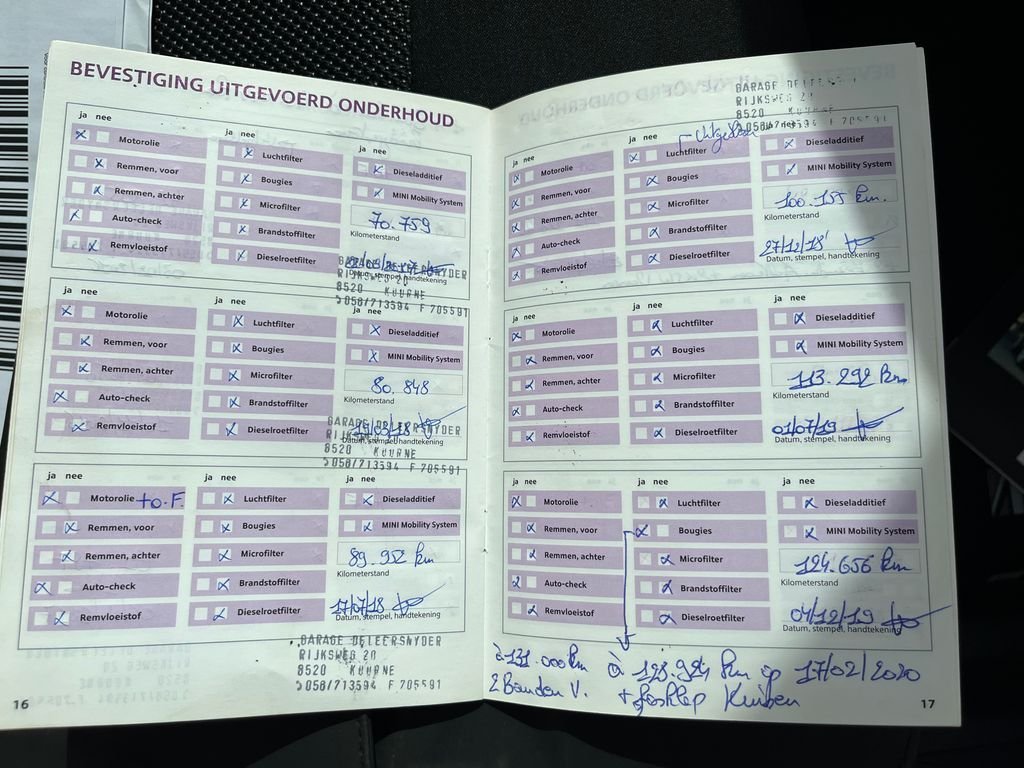 BEVESTIGING UITGEVOERD ONDERHOUD
ja nee
Motorolie
Remmen, voor
Remmen, achter
Auto-check
Remvloeistof
ja nee
Luchtfilter
Bougies
Microfilter
Brandstoffilter
Dieselroetfilter
ja nee
Dieseladditief
MINI Mobility System
70.759
Kilometerstand
Datum, stempel, handtekening
GARAGE DELEERSNYDER
RIJKSWEG 20
8520 KUURNE
5056/713594 F 705591
ja nee
Motorolie
Remmen, voor
Remmen, achter
Auto-check
Remvloeistof
ja nee
Luchtfilter
Bougies
Microfilter
Brandstoffilter
Dieselroetfilter
ja nee
Dieseladditief
MINI Mobility System
80.848
Kilometerstand
Datum, stempel, handtekening
GARAGE DELEERSNYDER
RIJKSWEG 20
8520 KUURNE
5056/713594 F 705591
ja nee
Motorolie + O.F.
Remmen, voor
Remmen, achter
Auto-check
Remvloeistof
ja nee
Luchtfilter
Bougies
Microfilter
Brandstoffilter
Dieselroetfilter
ja nee
Dieseladditief
MINI Mobility System
89.952 km
Kilometerstand
17/07/18
Datum, stempel, handtekening
GARAGE DELEERSNYDER
RIJKSWEG 20
8520 KUURNE
5056/713594 F 705591
16
GARAGE DELEERS
RIJKSWEG 20
8520 KUURNE
5056/713594 F 705591
ja nee
Motorolie
Remmen, voor
Remmen, achter
Auto-check
Remvloeistof
ja nee
Luchtfilter
Bougies
Microfilter
Brandstoffilter
Dieselroetfilter
nee
Dieseladditief
MINI Mobility System
100.155 km.
Kilometerstand
27/12/18
Datum, stempel, handtekening
ja nee
Motorolie
Remmen, voor
Remmen, achter
Auto-check
Remvloeistof
ja nee
Luchtfilter
Bougies
Microfilter
Brandstoffilter
Dieselroetfilter
ja nee
Dieseladditief
MINI Mobility System
113.292 km
Kilometerstand
01/07/19
Datum, stempel, handtekening
ja nee
Motorolie
Remmen, voor
Remmen, achter
Auto-check
Remvloeistof
ja nee
Luchtfilter
Bougies
Microfilter
Brandstoffilter
Dieselroetfilter
ja nee
Dieseladditief
MINI Mobility System
124.656 km
Kilometerstand
04/12/19
Datum, stempel, handtekening
à 131.000 km
2 Banden V.
à 128.924 km op 17/02/2020
17